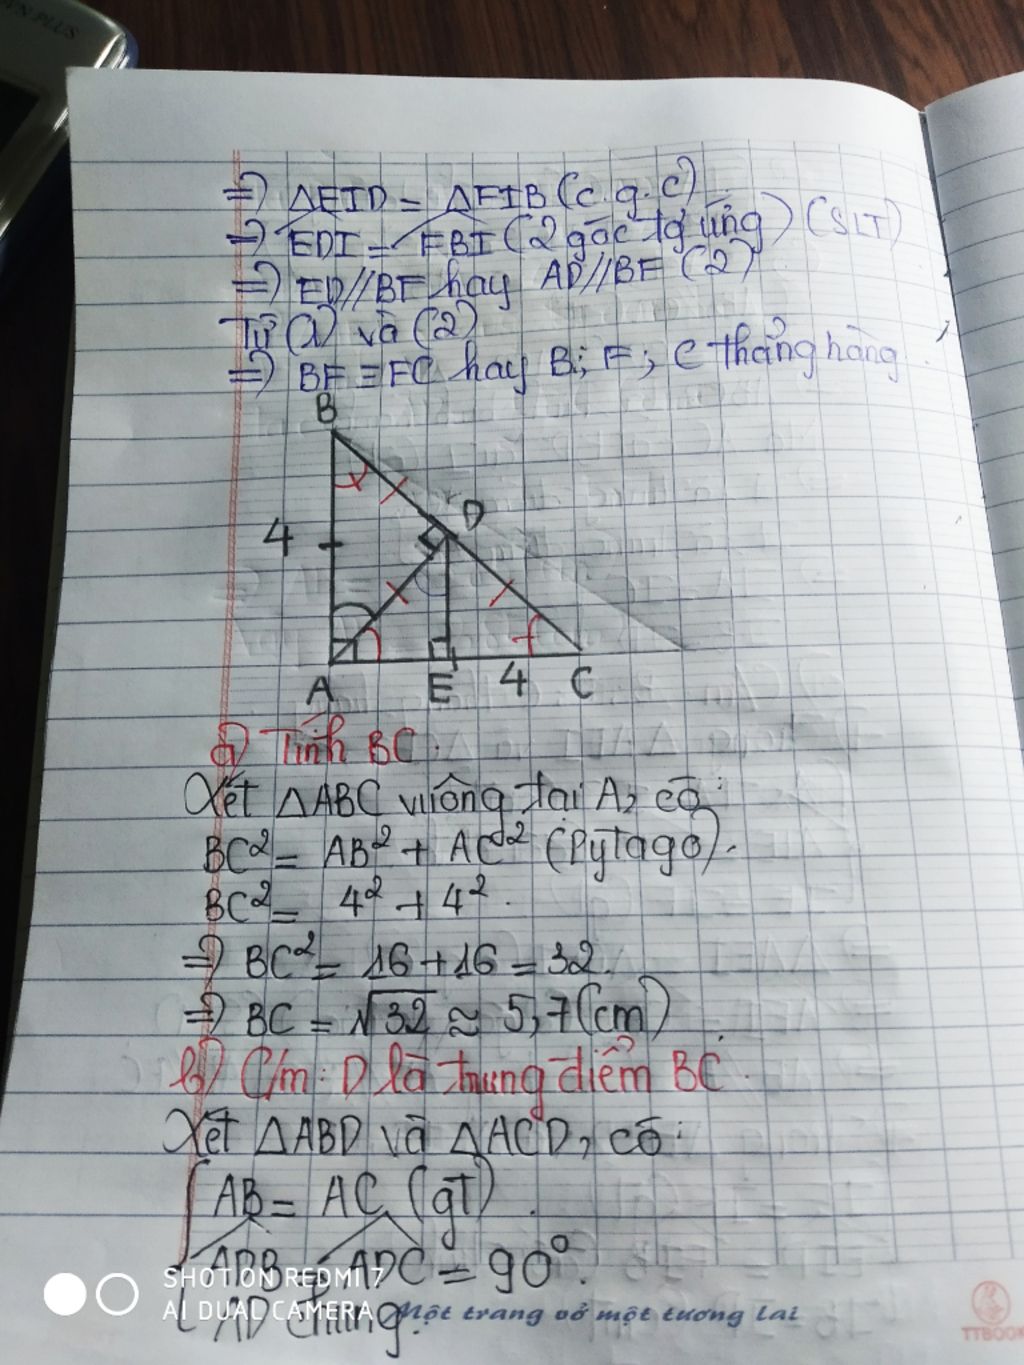 ⇒) ΔEID = ΔFIB (c.g.c)
⇒) EDI = FBI (2 góc tơ ứng) (SLT)
⇒) ED//BF hay AD//BF (2)
Từ (1) và (2)
⇒) BF ≡ FC hay B; F; C thẳng hàng.
B
D
4
A
E
4
C
a) Tính BC.
Xét ΔABC vuông tại A, có:
BC² = AB² + AC² (Pytago).
BC² = 4² + 4².
⇒) BC² = 16 + 16 = 32.
⇒) BC = √32 ≈ 5,7 (cm).
b) C/m: D là trung điểm BC.
Xét ΔABD và ΔACD, có:
AB = AC (gt).
ADB = ADC = 90°.
AD chung.
SHOT ON REDMI 7
AI DUAL CAMERA
Một trang vở một tương lai